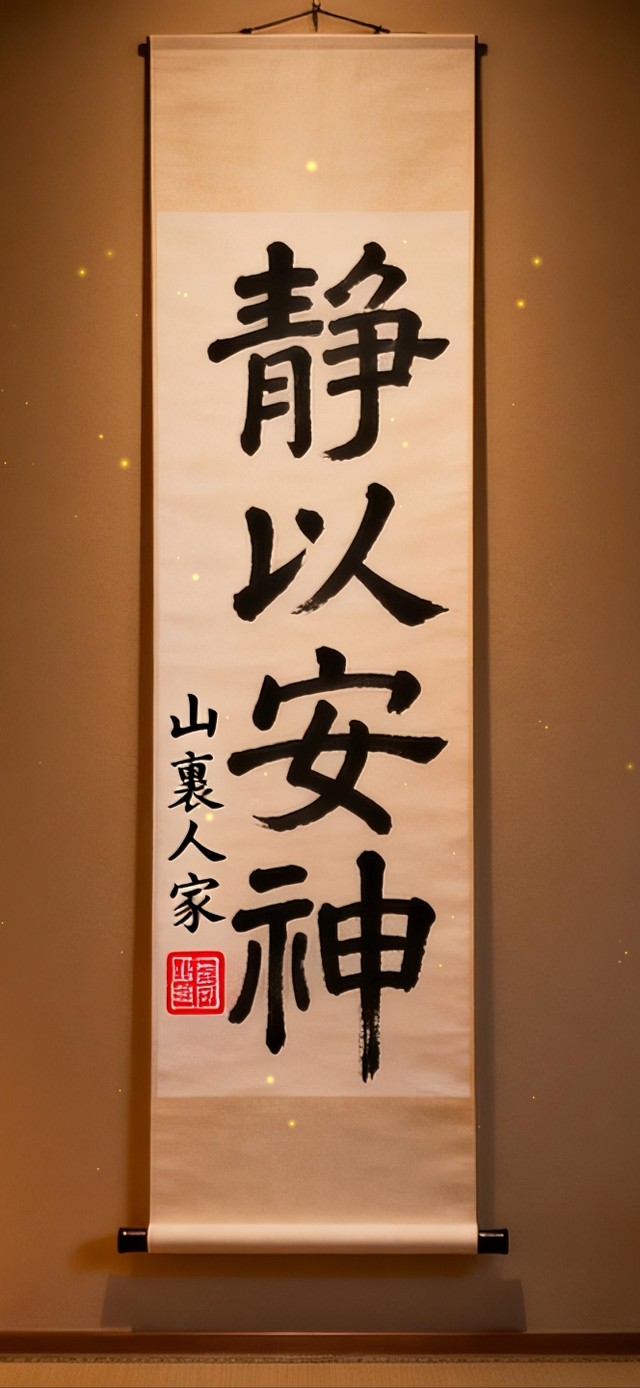 静以安神
山裏人家